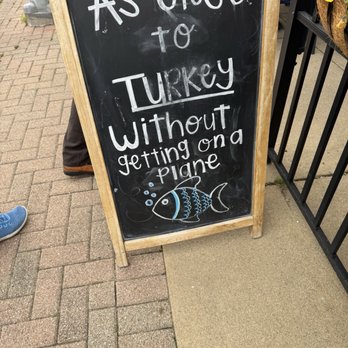 As close
to
TURKEY
without
getting on a
plane